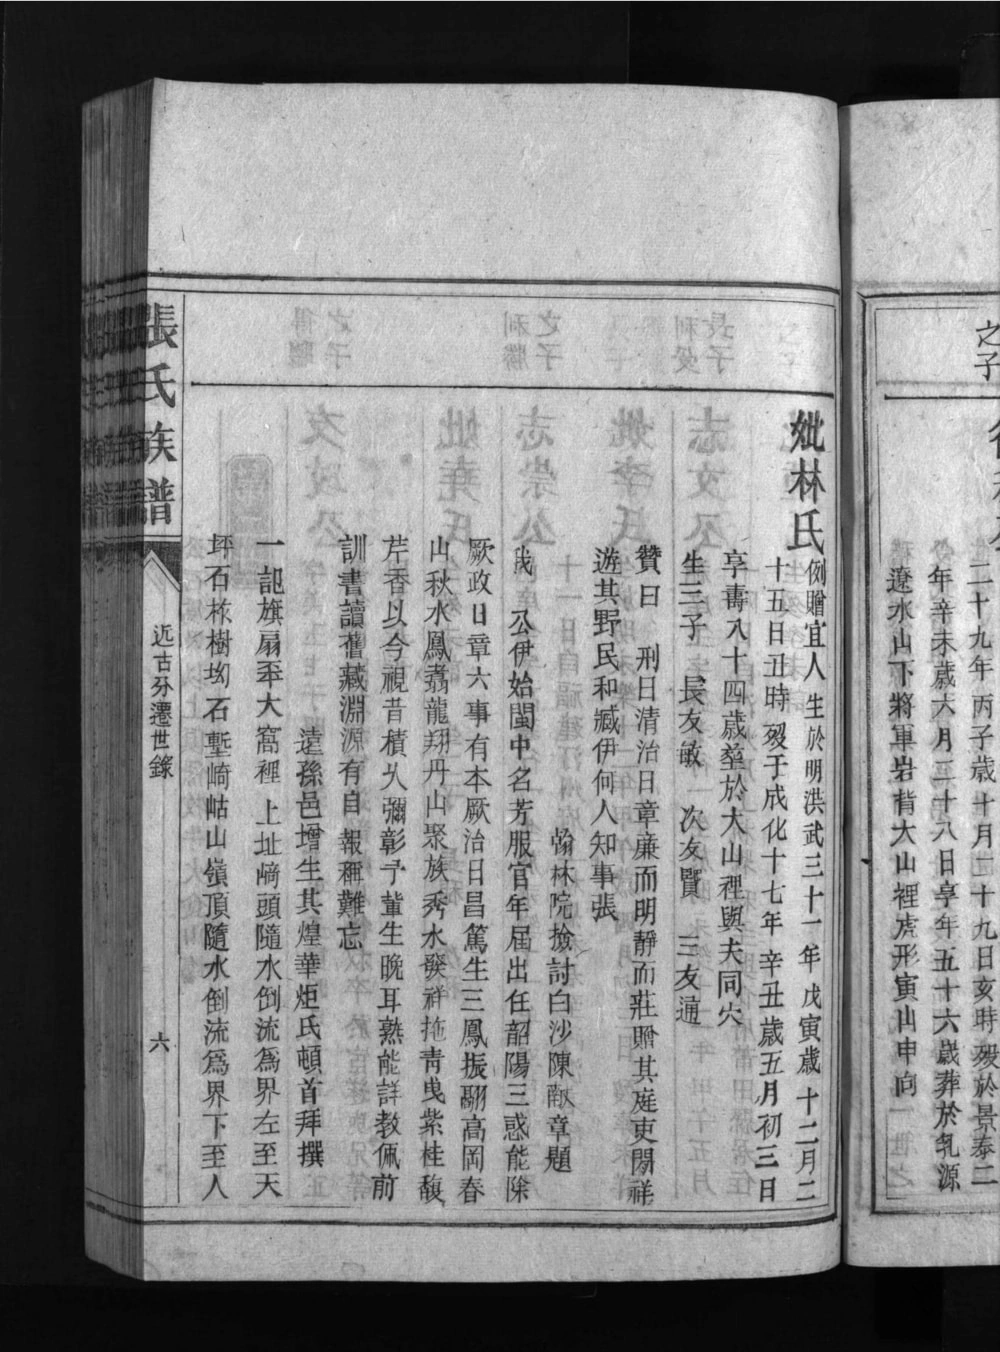 之子
二十九年丙子歲十月二十九日亥時歿於景泰二
年辛未歲六月二十八日享年五十六歲葬於乳源
遼水山下將軍岩背大山裡虎形寅山申向
妣林氏例贈宜人生於明洪武三十一年戊寅歲十二月二
十五日丑時歿于成化十七年辛丑歲五月初三日
享壽八十四歲塟於大山裡與夫同穴
生三子 長友敏 次友賢 三友通
贊曰 刑日清治日章廉而明靜而莊贍其庭吏閒祥
遊其野民和臧伊何人知事張
翰林院撿討白沙陳獻章題
我 公伊始閩中名芳服官年屆出任韶陽三惑能除
厥政日章六事有本厥治日昌篤生三鳳振翮高岡春
山秋水鳳翥龍翔丹山聚族秀水發祥拖青曳紫桂馥
芹香以今視昔積久彌彰予輩生晚耳熟能詳敎佩前
訓書讀舊藏淵源有自報稱難忘
遠孫邑增生其煌華炬氏頓首拜撰
一記旗扇平大窩裡上址崎頭隨水倒流爲界左至天
坪石栋樹坳石塹崎岵山嶺頂隨水倒流爲界下至人
張氏族譜
近古分遷世錄
六